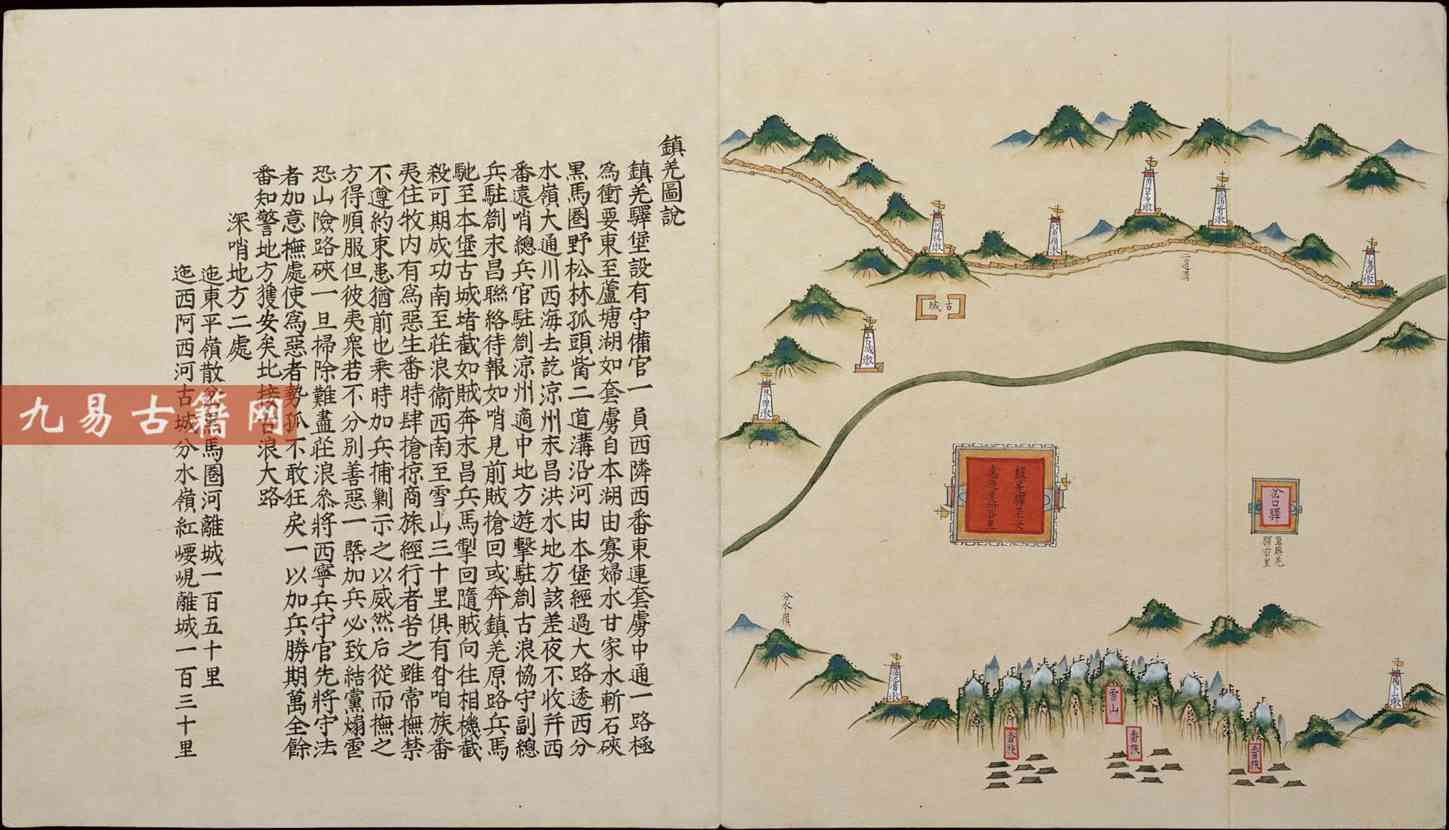 鎮羌圖說
鎮羌驛堡設有守備官一員西隣西番東連套虜中通一路極
為衝要東至蘆塘湖如套虜自本湖由寡婦水甘家水斬石硤
黑馬圈野松林孤頭㟮二道溝沿河由本堡經過大路透西分
水嶺大通川西海去訖涼州末昌洪水地方該差夜不收幷西
番遠哨總兵官駐劄涼州適中地方遊擊駐劄古浪恊守副總
兵駐劄末昌聯絡待報如哨見前賊搶回或奔鎮羌原路兵馬
馳至本堡古城堵截如賊奔末昌兵馬掣回隨賊向往相機截
殺可期成功南至莊浪衞西南至雪山三十里俱有咎咱族番
夷住牧內有為惡生番時肆搶掠商旅經行者苦之雖常撫禁
不遵約束患猶前也乘時加兵捕剿示之以威然后從而撫之
方得順服但彼夷衆若不分别善惡一槩加兵必致結黨煽
恐山險路硤一旦掃除難盡莊浪叅將西寧兵守官先將守法
者加意撫處使為惡者勢孤不敢狂戾一以加兵勝期萬全餘
番知警地方獲安矣北接古浪大路
深哨地方二處
迤東平嶺散馬圈河離城一百五十里
迤西阿西河古城分水嶺紅崾峴離城一百三十里
古城
岔口驛
分水嶺
雪山
番族
番族
番族
九易古籍网